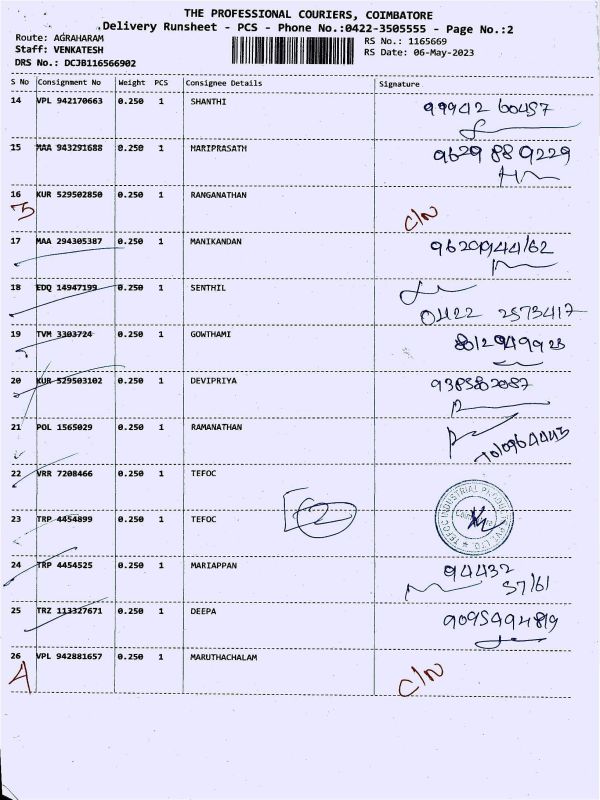 THE PROFESSIONAL COURIERS, COIMBATORE
.Delivery Runsheet - PCS - Phone No.:0422-3505555 - Page No.:2
Route: AGRAHARAM RS No.: 1165669
Staff: VENKATESH RS Date: 06-May-2023
DRS No.: DCJB116566902
S No Consignment No Weight PCS Consignee Details Signature
14 VPL 942170663 0.250 1 SHANTHI 99942 60457
15 MAA 943291688 0.250 1 HARIPRASATH 9629 889229
16 KUR 529502850 0.250 1 RANGANATHAN C/N
3
17 MAA 294305387 0.250 1 MANIKANDAN
18 EDQ 14947199 0.250 1 SENTHIL
0422 2573417
19 TVM 3303724 0.250 1 GOWTHAMI
20 KUR 529503102 0.250 1 DEVIPRIYA
21 POL 1565029 0.250 1 RAMANATHAN
22 VRR 7208466 0.250 1 TEFOC
23 TRP 4454899 0.250 1 TEFOC
TEFOC INDUSTRIAL PRODUCTS PVT. LTD.
24 TRP 4454525 0.250 1 MARIAPPAN 94432
57161
25 TRZ 113327671 0.250 1 DEEPA 9095494819
26 VPL 942881657 0.250 1 MARUTHACHALAM C/N
4